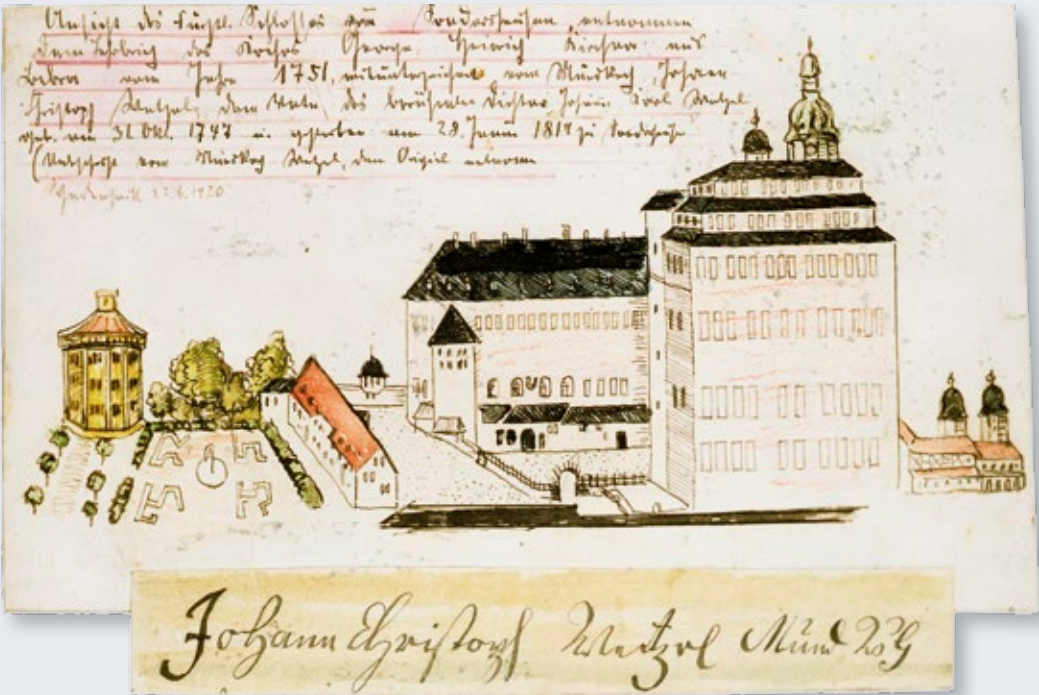 Ansicht des Fürstl. Schlosses zu Sondershausen, entnommen
dem Lehrbrief des Kochs George Heinrich Kirchner aus
Bebra vom Jahre 1751, mitunterzeichnet vom Mundkoch Johann
Christoph Wetzel, dem Vater des berühmten Dichters Johann Karl Wetzel
geb. am 31 Okt. 1747 u. gestorben am 28. Januar 1819 zu Sondershausen
(Unterschrift vom Mundkoch Wetzel, dem Original entnommen
22.6.1920
Johann Christoph Wetzel Mund